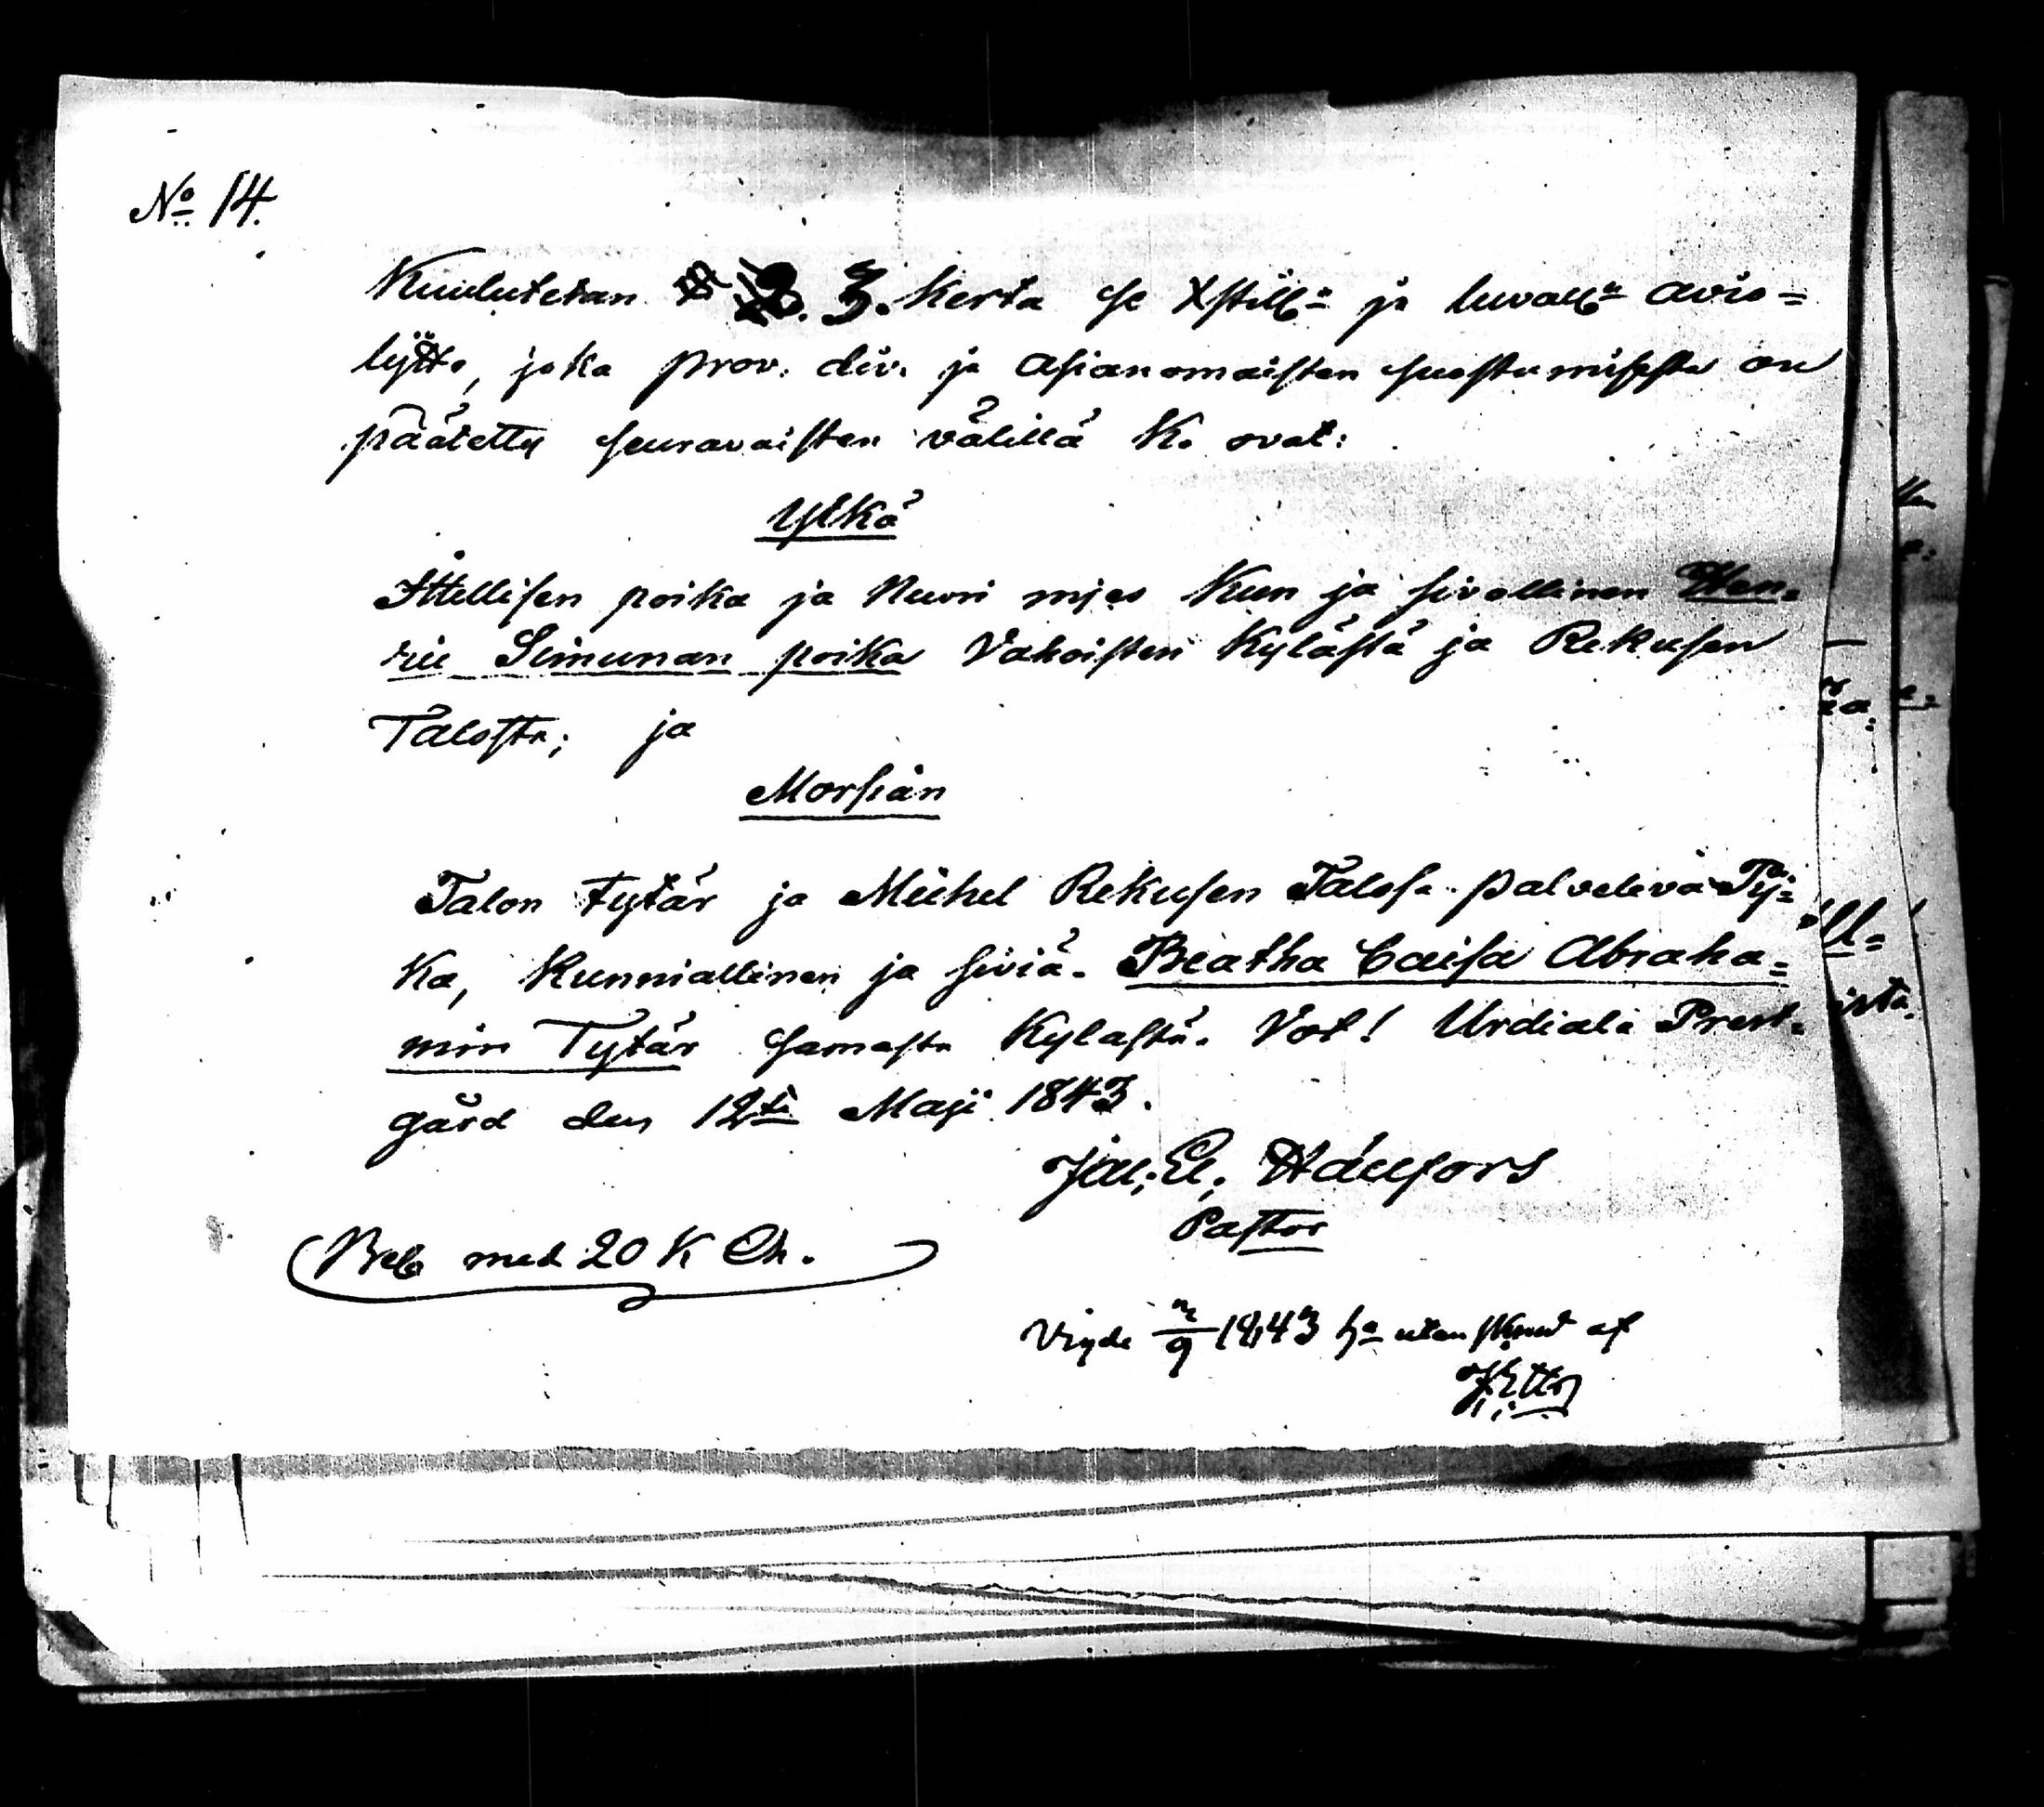 No 14.
Kuulutetan 2. 3. kerta se Xstill:n ja luvall:n avio=
lijtto, joka prov. div. ja asianomaisten suostumisesta on
päätetty seuravaisten välillä K. ovat:
Ylkä
Ittellisen poika ja Nuori mies Kun ja sivellinen Hen=
ric Simunan poika Vahoisten Kylästä ja Rekusen
Talosta; ja
Morsian
Talon tytär ja Michel Rekusen Talosa palveleva Pij=
ka, Kunniallinen ja siviä. Beatha Caisa Abraha=
min Tytär samasta Kylästä. Vot! Urdiala Prest=
gård den 12te Maji 1843.
Pastor
med 20 K
Vigde 9 1843 utan af